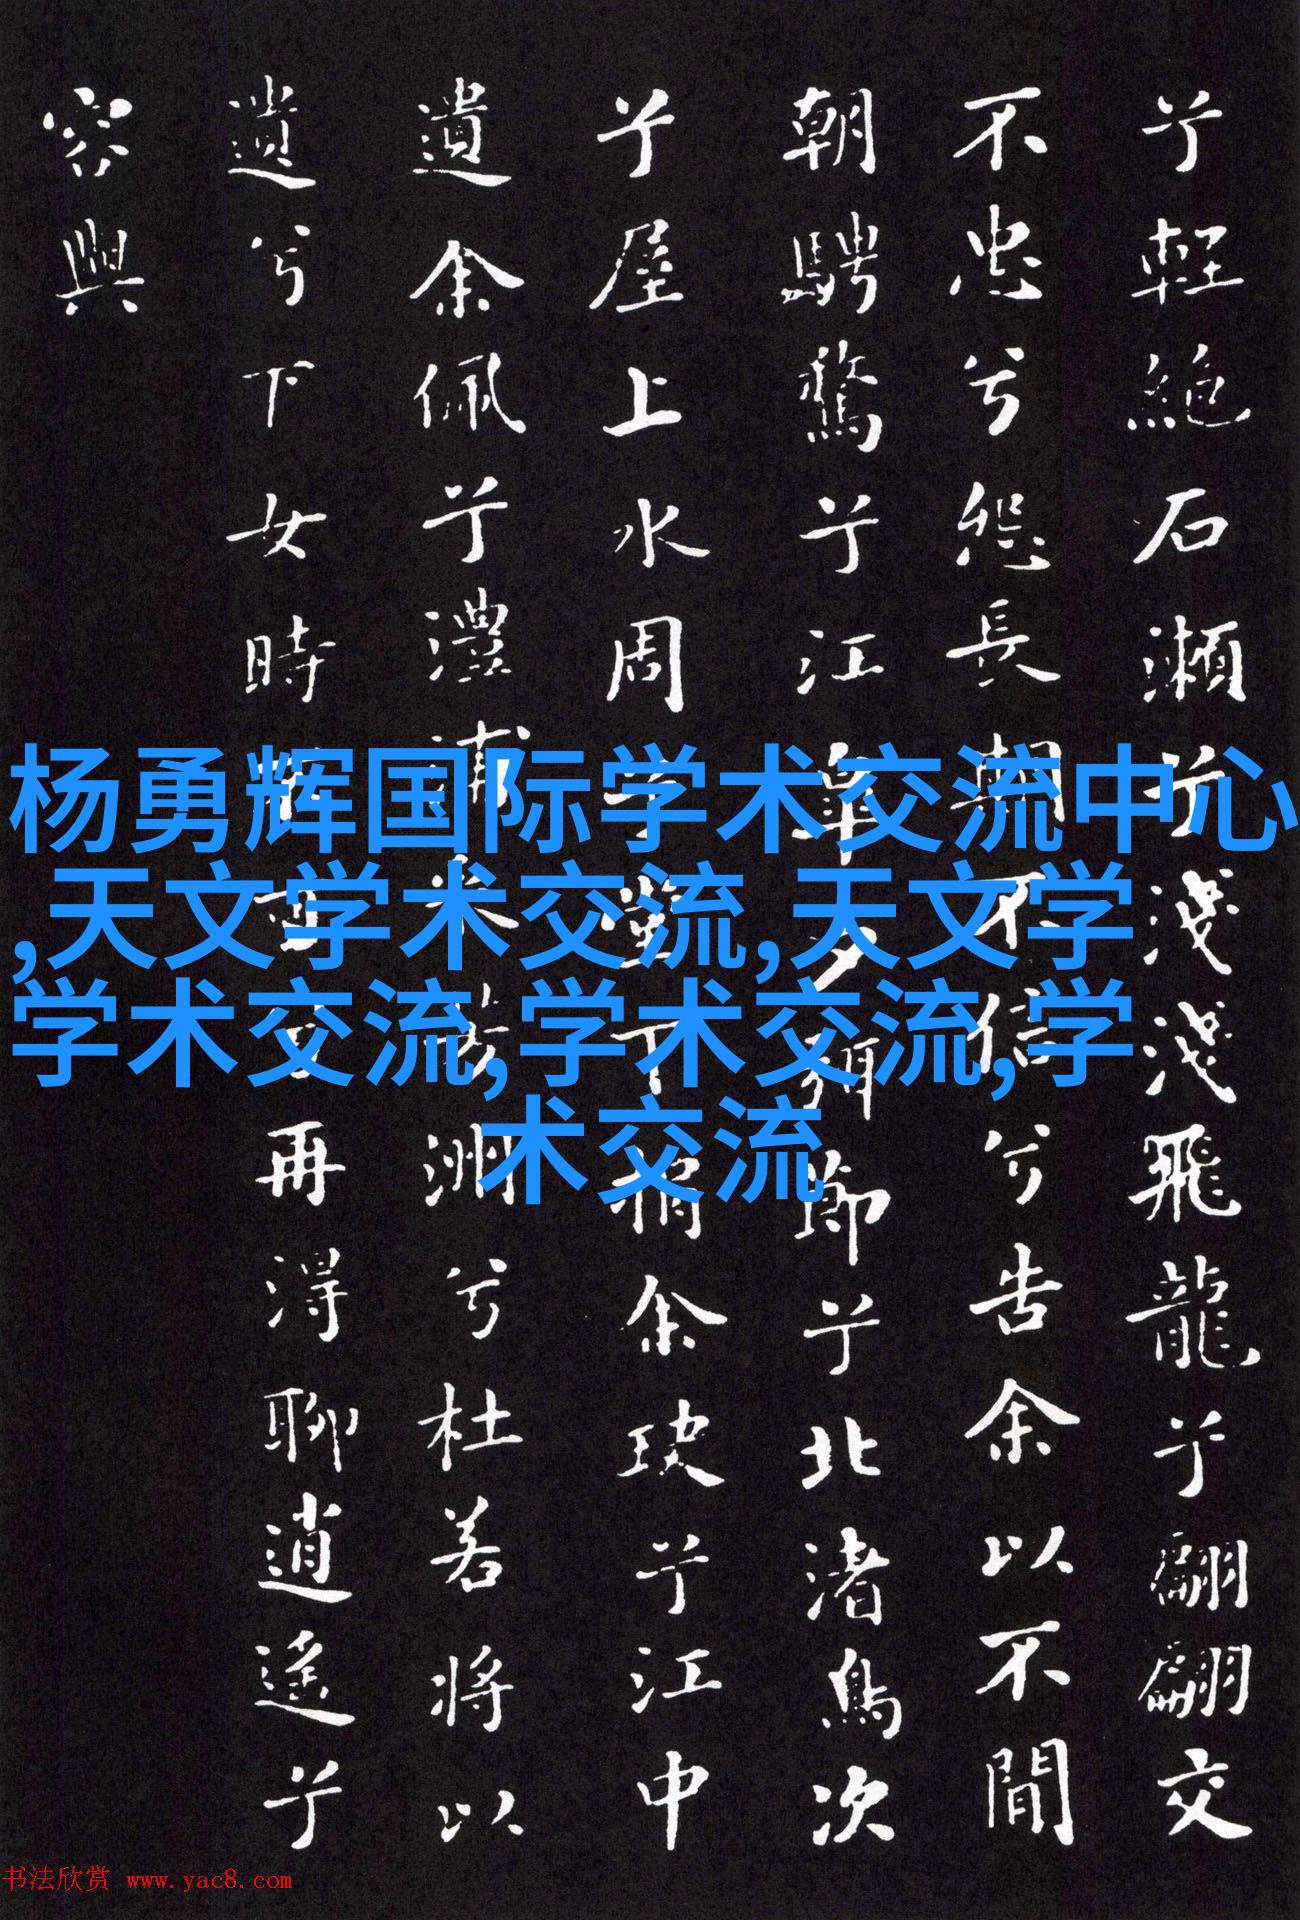 兮輕絕石瀨兮淺淺飛龍兮翩翩交
不忠兮怨長期不信兮告余以不閒
朝騁騖兮江皋夕弭節兮北渚鳥次
兮屋上水周兮堂下捐余玦兮江中
遺余佩兮澧浦采芳洲兮杜若將以
遺兮下女時再得聊逍遙兮
容與
杨勇辉国际学术交流中心
,天文学术交流,天文学
学术交流,学术交流,学
术交流
书法欣赏 www.yac8.com